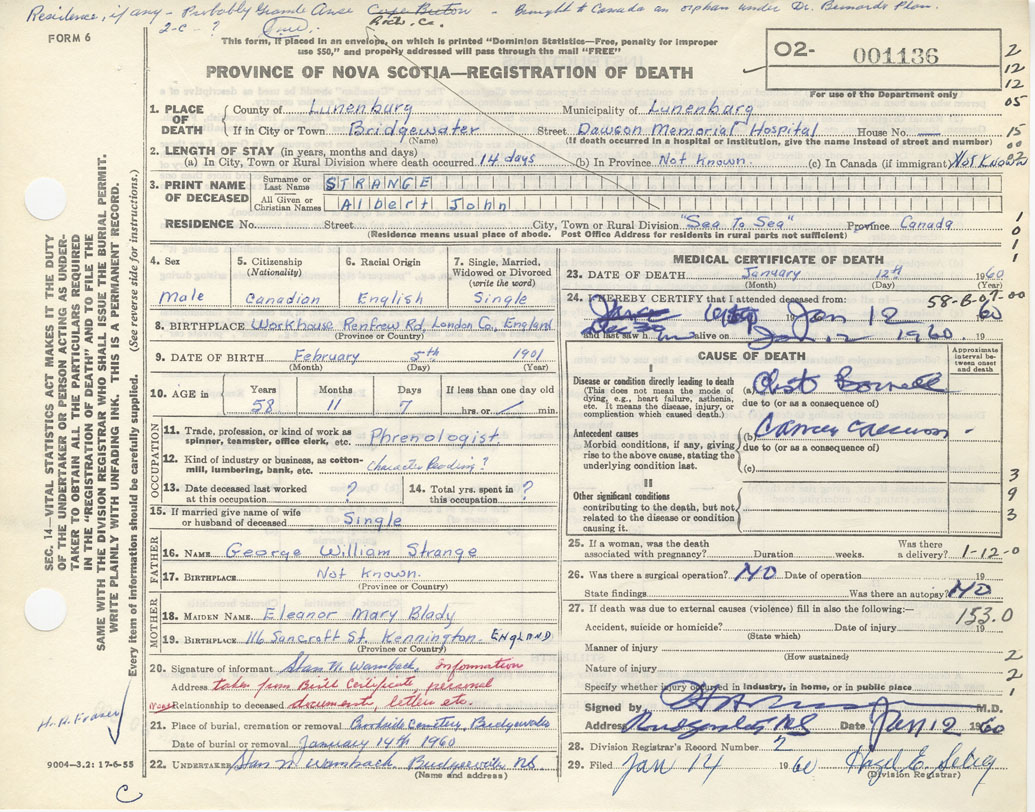 Residence, if any - Probably Grande Anse Cape Breton - Brought to Canada an orphan under Dr. Bernardo Plan.
Rich. Co.
2-c-?
FORM 6
This form, if placed in an envelope, on which is printed "Dominion Statistics—Free, penalty for improper
use $50," and properly addressed will pass through the mail "FREE"
PROVINCE OF NOVA SCOTIA—REGISTRATION OF DEATH
O2- 001136
For use of the Department only
2
12
12
05
15
00
02
1. PLACE OF DEATH
County of Lunenburg Municipality of Lunenburg
If in City or Town Bridgewater Street Dawson Memorial Hospital House No. —
(Name) (If death occurred in a hospital or institution, give the name instead of street and number)
2. LENGTH OF STAY (in years, months and days)
(a) In City, Town or Rural Division where death occurred 14 days (b) In Province Not Known. (c) In Canada (if immigrant) Not Known
3. PRINT NAME OF DECEASED
Surname or Last Name STRANGE
All Given or Christian Names Albert John
RESIDENCE No. Street City, Town or Rural Division "Sea To Sea" Province Canada
(Residence means usual place of abode. Post Office Address for residents in rural parts not sufficient)
1
0
1
1
4. Sex
Male
5. Citizenship (Nationality)
Canadian
6. Racial Origin
English
7. Single, Married, Widowed or Divorced (write the word)
Single
8. BIRTHPLACE Workhouse Renfrew Rd, London Co., England
(Province or Country)
9. DATE OF BIRTH February 5th 1901
(Month) (Day) (Year)
10. AGE in Years Months Days If less than one day old
58 11 7 hrs. or min.
OCCUPATION
11. Trade, profession, or kind of work as spinner, teamster, office clerk, etc. Phrenologist
12. Kind of industry or business, as cotton-mill, lumbering, bank, etc. Character Reading?
13. Date deceased last worked at this occupation ?
14. Total yrs. spent in this occupation ?
15. If married give name of wife or husband of deceased Single
FATHER
16. NAME George William Strange
17. BIRTHPLACE Not Known.
(Province or Country)
MOTHER
18. MAIDEN NAME Eleanor Mary Blady
19. BIRTHPLACE 116 Sancroft St. Kennington. ENGLAND
(Province or Country)
20. Signature of informant Stan W. Wambach. information
Address taken from Birth Certificate, personal
Relationship to deceased documents, letters etc.
21. Place of burial, cremation or removal Brookside Cemetery, Bridgewater
Date of burial or removal January 14th 1960
22. UNDERTAKER Stan W Wambach. Bridgewater NS
(Name and address)
MEDICAL CERTIFICATE OF DEATH
23. DATE OF DEATH January 12th 1960
(Month) (Day) (Year)
24. I HEREBY CERTIFY that I attended deceased from: 58-B-07-00
Jan 12 1960
and last saw h alive on Jan. 12 1960. 19
CAUSE OF DEATH
Approximate interval between onset and death
I
Disease or condition directly leading to death (a)
(This does not mean the mode of dying, e.g., heart failure, asthenia, etc. It means the disease, injury, or complication which caused death.)
due to (or as a consequence of)
Antecedent causes (b)
Morbid conditions, if any, giving rise to the above cause, stating the underlying condition last.
due to (or as a consequence of)
(c)
II
Other significant conditions contributing to the death, but not related to the disease or condition causing it.
3
9
3
25. If a woman, was the death associated with pregnancy? Duration weeks. Was there a delivery? 1-12-0
26. Was there a surgical operation? NO Date of operation 19
State findings Was there an autopsy? NO
27. If death was due to external causes (violence) fill in also the following:—
153.0
Accident, suicide or homicide? Date of injury 19
(State which)
Manner of injury
(How sustained)
Nature of injury
Specify whether injury occurred in industry, in home, or in public place
2
2
1
Signed by M.D.
Address Bridgewater NS Date Jan 12 1960
28. Division Registrar's Record Number 7
29. Filed Jan 14 1960 Hazel E. Selig
(Division Registrar)
SEC. 14—VITAL STATISTICS ACT MAKES IT THE DUTY
OF THE UNDERTAKER OR PERSON ACTING AS UNDER-
TAKER TO OBTAIN ALL THE PARTICULARS REQUIRED
IN THE "REGISTRATION OF DEATH" AND TO FILE THE
SAME WITH THE DIVISION REGISTRAR WHO SHALL ISSUE THE BURIAL PERMIT.
WRITE PLAINLY WITH UNFADING INK. THIS IS A PERMANENT RECORD.
Every item of information should be carefully supplied. (See reverse side for instructions.)
H. H. Fraser
9004—3.2: 17-6-55
C